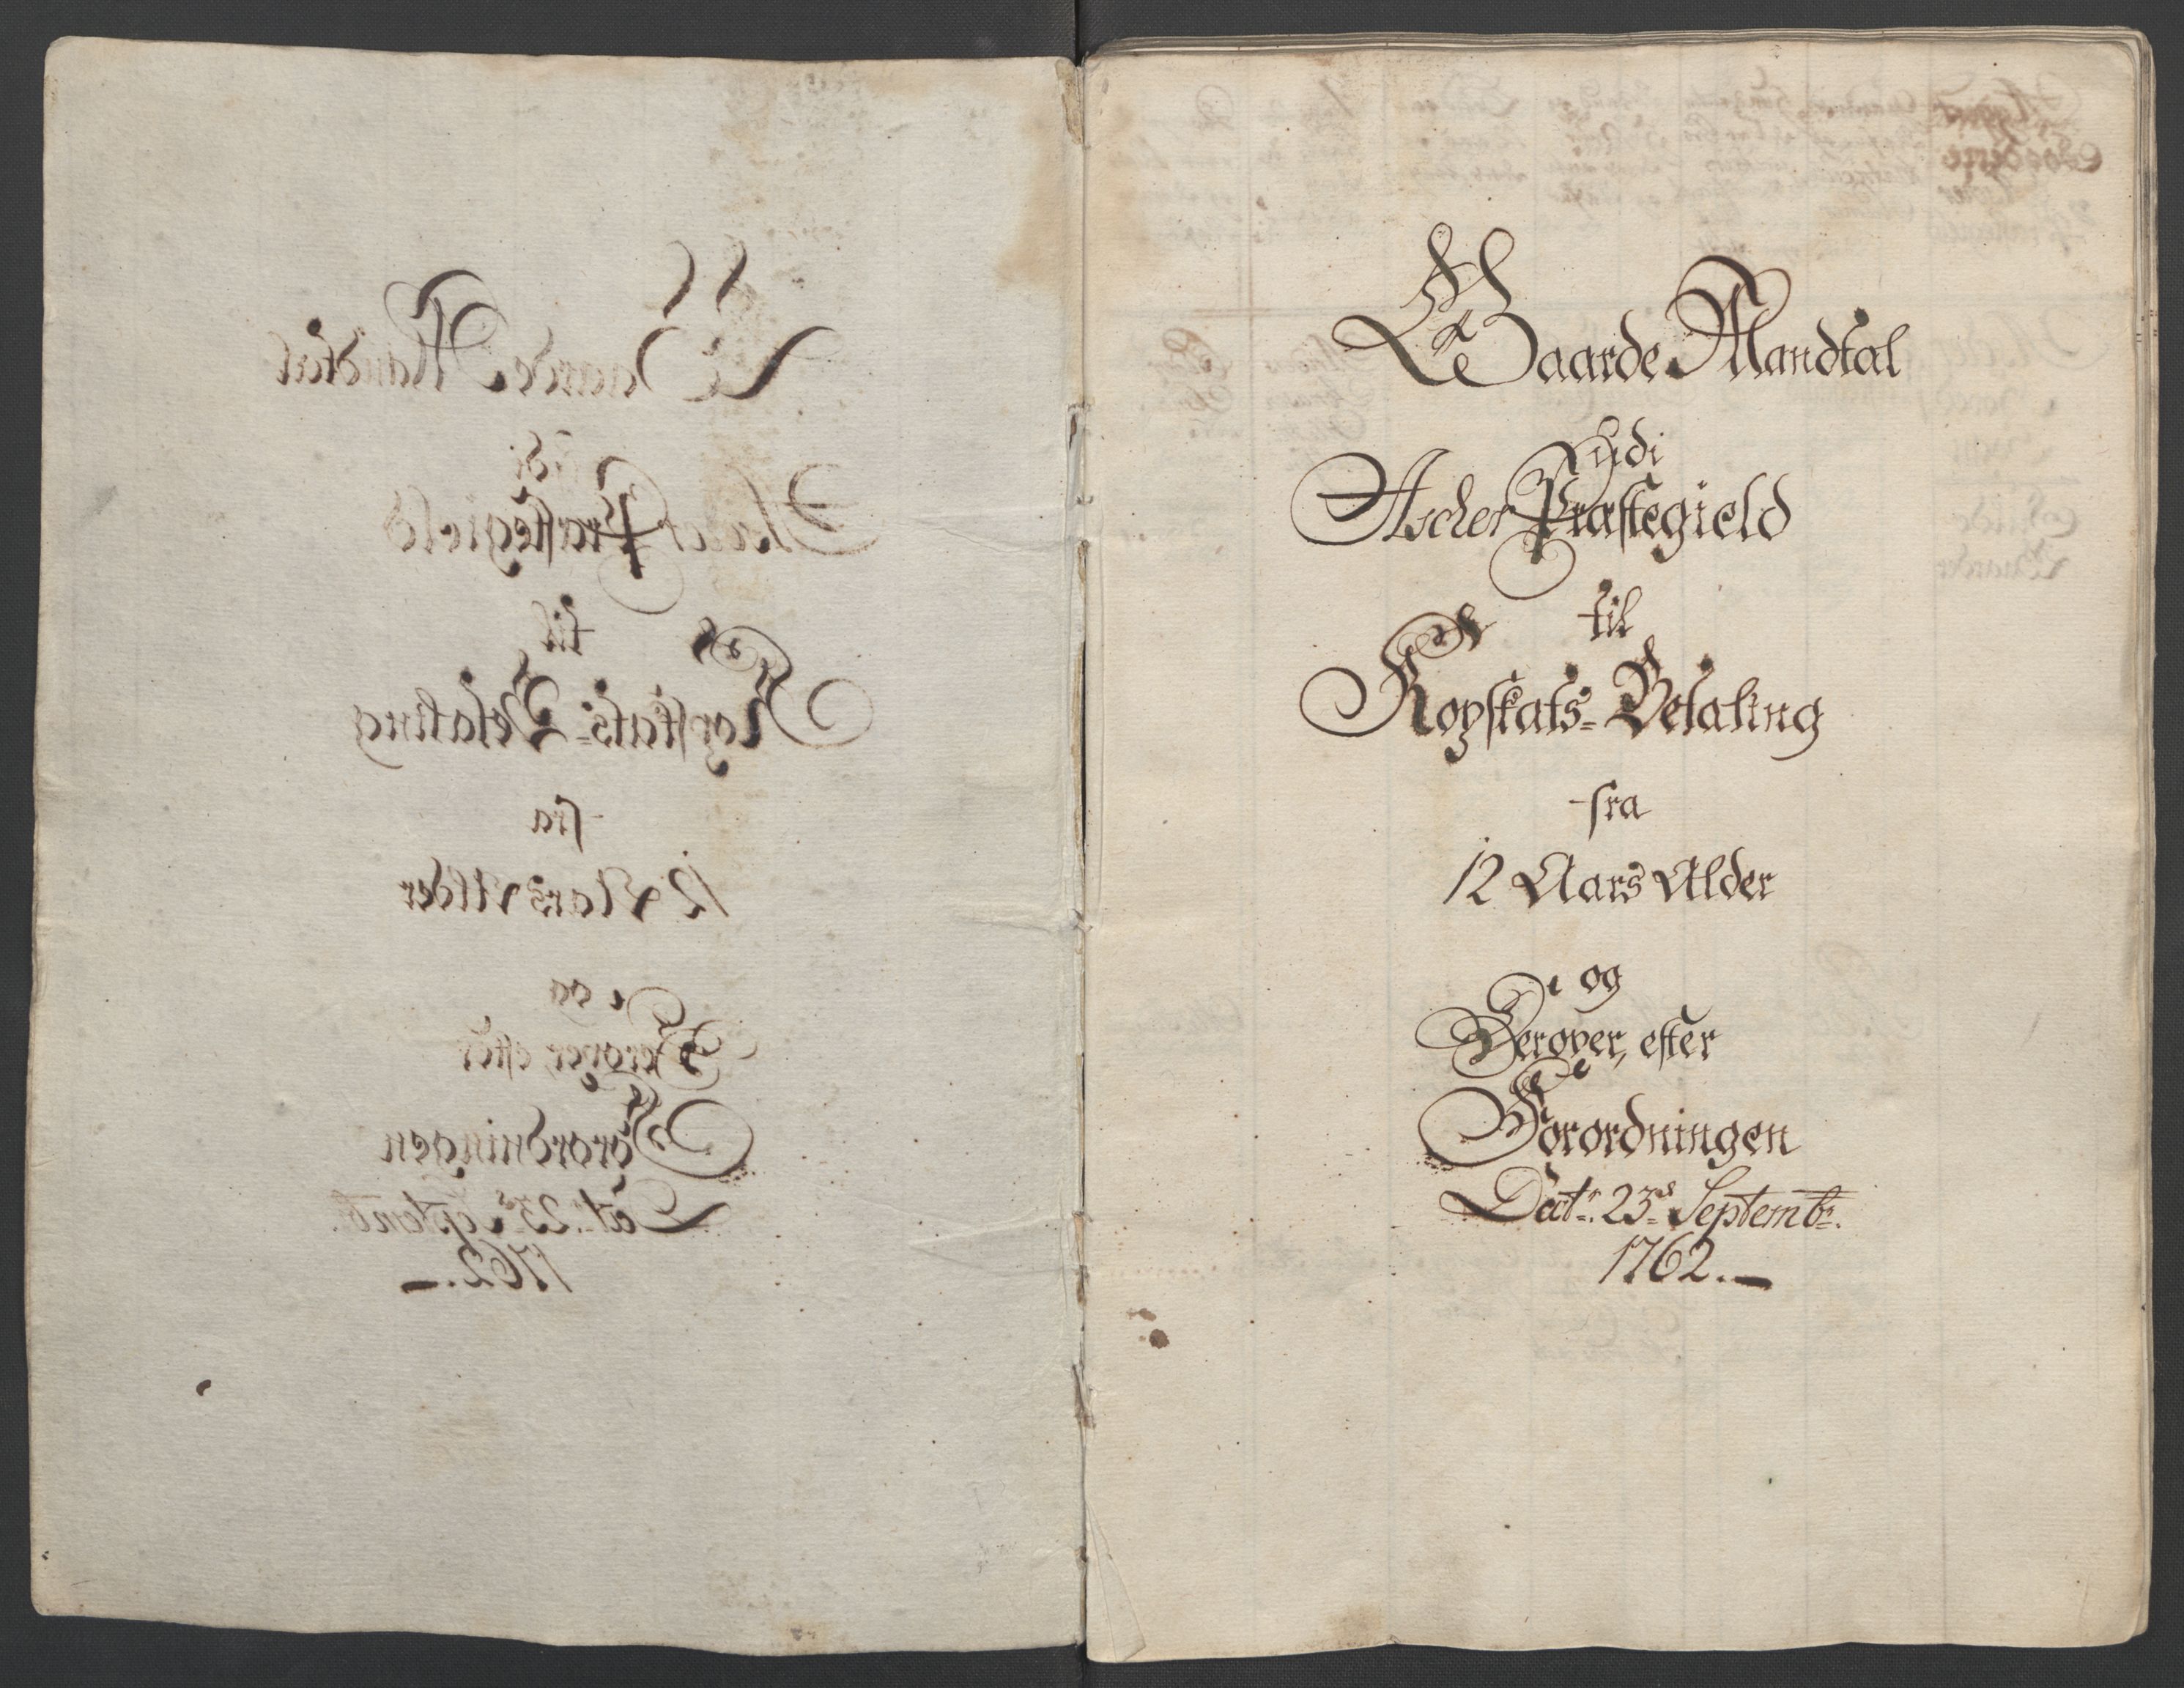 Gaarde Mandtal
udi
Ascher Præstegield
til
Kopskats-Betaling
fra
12 Aars Alder
og
Derover, efter
Forordningen
Datr. 23de Septembr.
1762.